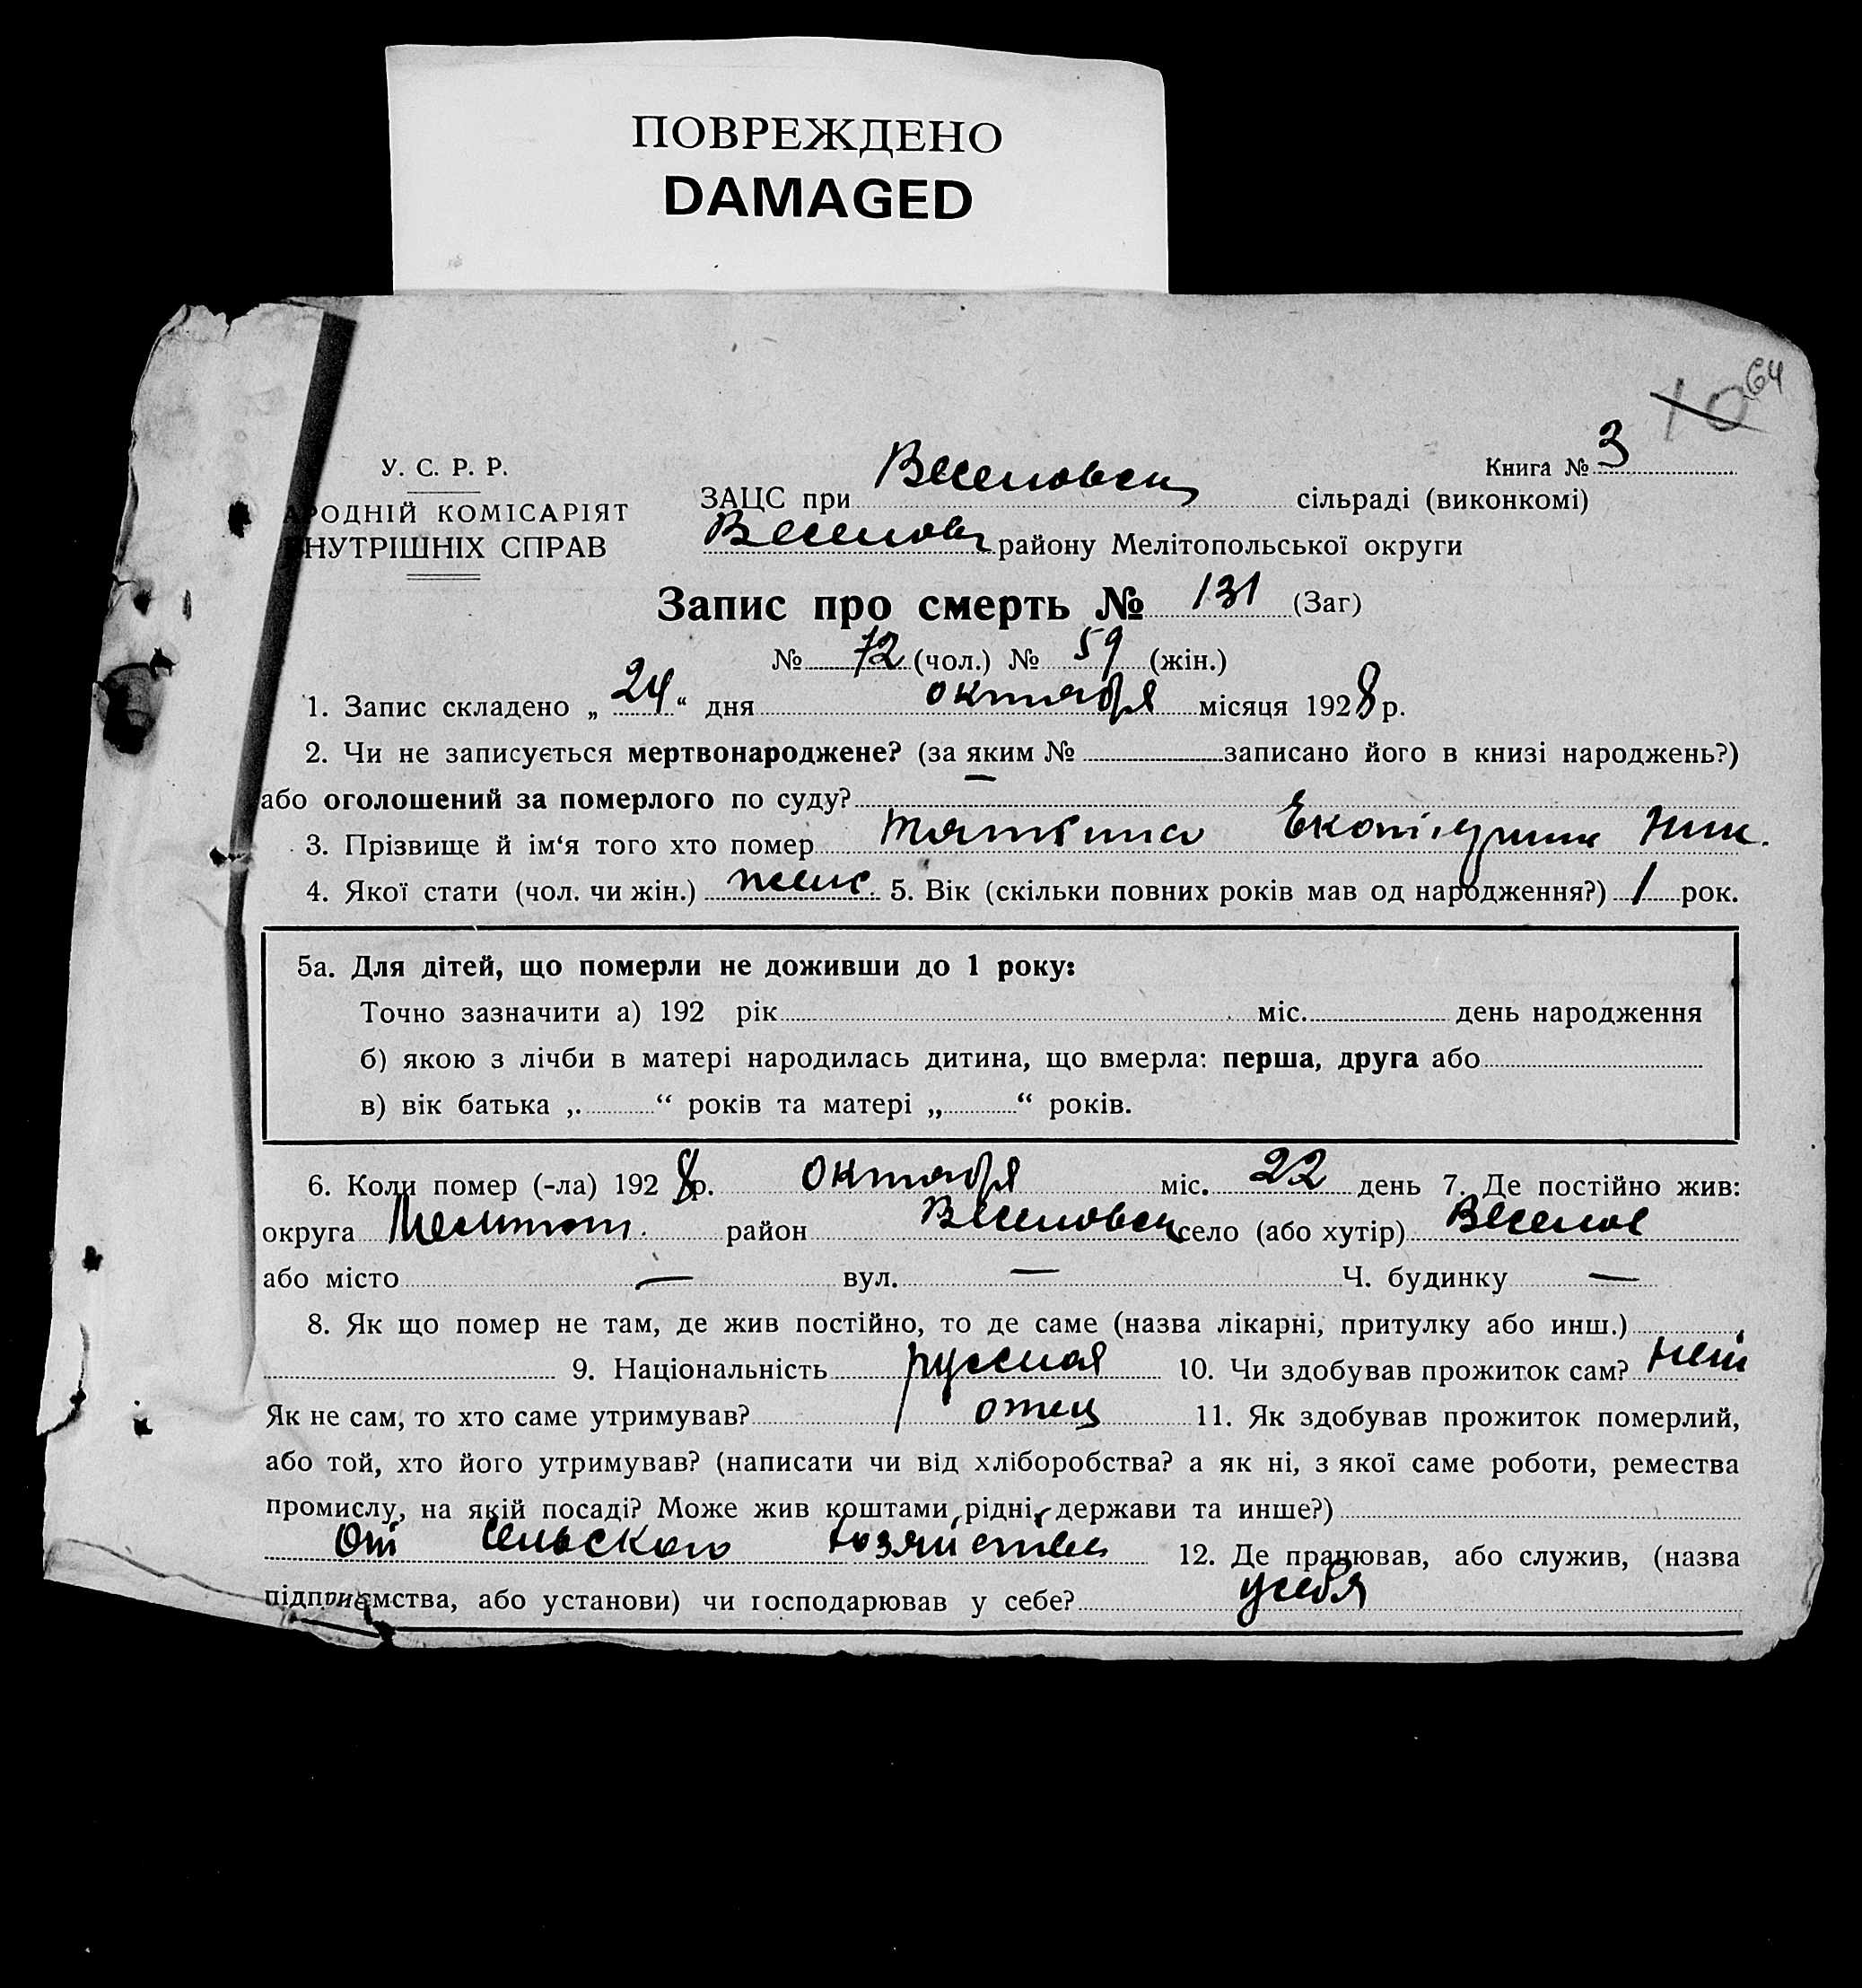 ПОВРЕЖДЕНО
DAMAGED
64
10
У. С. Р. Р.
АРОДНІЙ КОМІСАРІЯТ
НУТРІШНІХ СПРАВ
Книга № 3
ЗАЦС при Веселовск сільраді (виконкомі)
Веселов району Мелітопольської округи
Запис про смерть № 131 (Заг)
№ 72 (чол.) № 59 (жін.)
1. Запис складено „ 24 “ дня октября місяця 1928 р.
2. Чи не записується мертвонароджене? (за яким № записано його в книзі народжень?)
або оголошений за померлого по суду? —
3. Прізвище й ім‘я того хто помер Ник.
4. Якої стати (чол. чи жін.) женс. 5. Вік (скільки повних років мав од народження?) 1 рок.
5а. Для дітей, що померли не доживши до 1 року:
Точно зазначити а) 192 рік міс. день народження
б) якою з лічби в матері народилась дитина, що вмерла: перша, друга або
в) вік батька „ “ років та матері „ “ років.
6. Коли помер (-ла) 1928 р. октября міс. 22 день 7. Де постійно жив:
округа Мелитоп. район Веселовск село (або хутір) Веселое
або місто — вул. — Ч. будинку —
8. Як що помер не там, де жив постійно, то де саме (назва лікарні, притулку або инш.)
9. Національність русская 10. Чи здобував прожиток сам? нет
Як не сам, то хто саме утримував? отец 11. Як здобував прожиток померлий,
або той, хто його утримував? (написати чи від хліборобства? а як ні, з якої саме роботи, ремества
промислу, на якій посаді? Може жив коштами рідні, держави та инше?)
От сельского хозяйства 12. Де працював, або служив, (назва
підприємства, або установи) чи господарював у себе? у себя